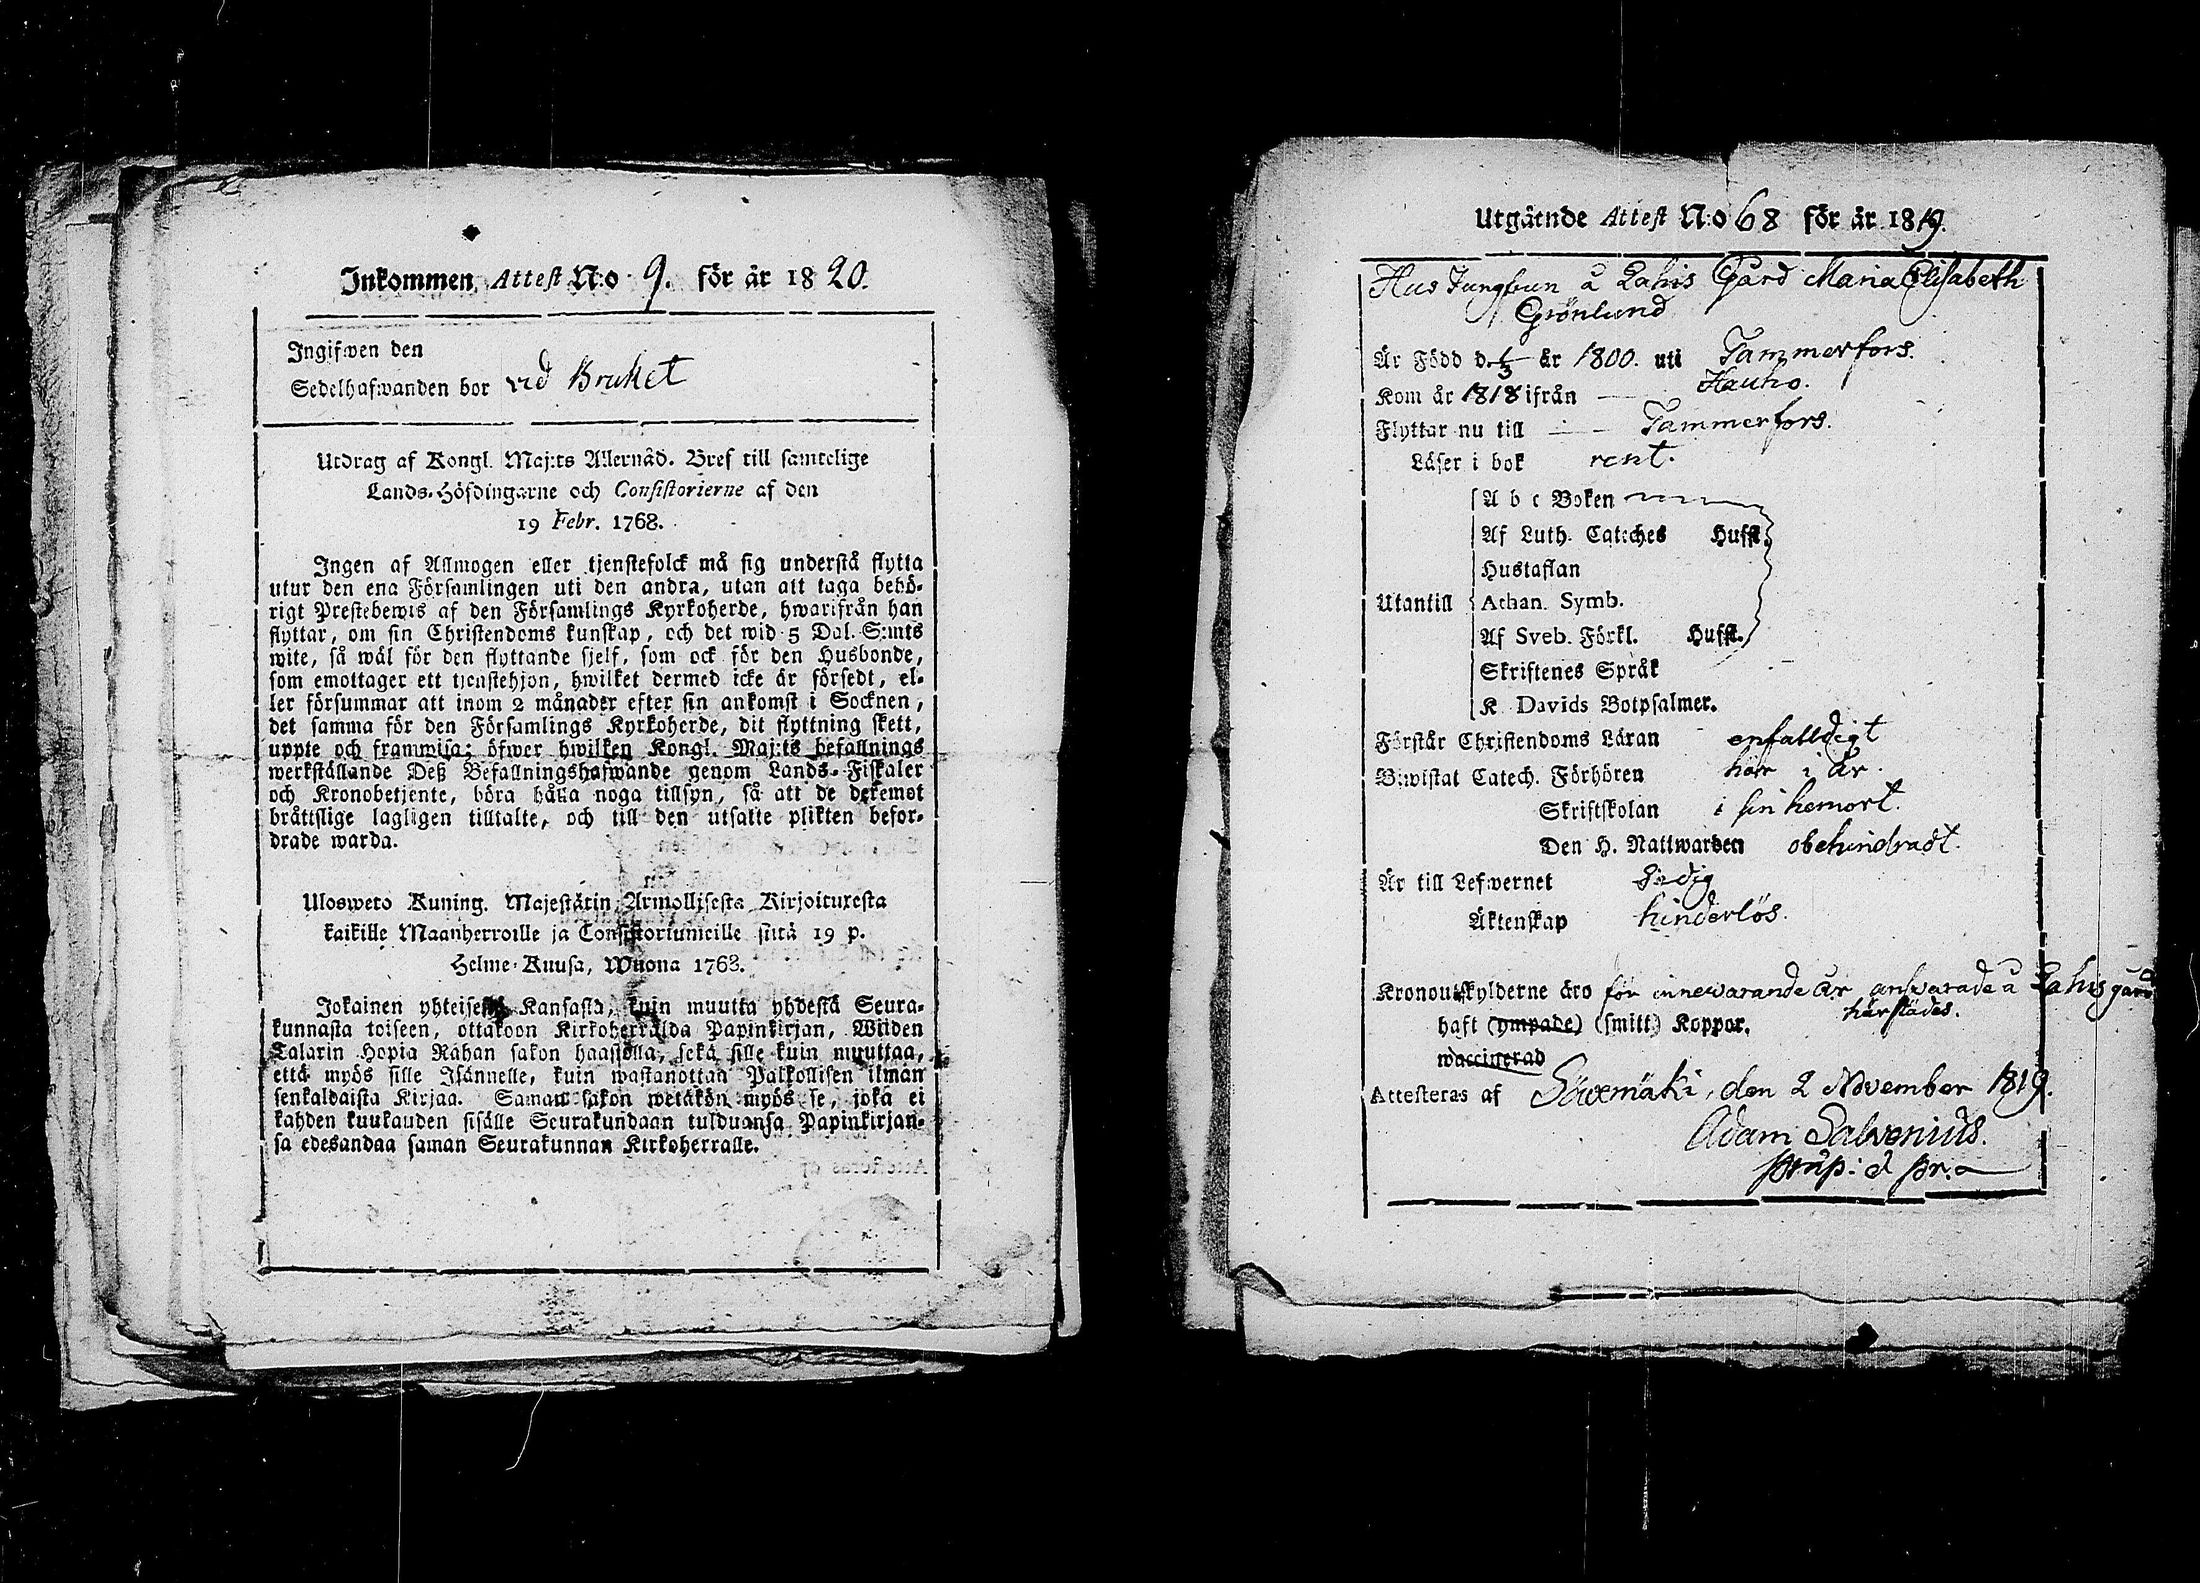 Inkommen Attest N:o 9. för år 1820.
Ingifwen den
Sedelhafwanden bor vid Bruket
Utdrag af Kongl. Maj:ts Allernåd. Bref till samtelige
Lands-Höfdingarne och Consistorierne af den
19 Febr. 1768.
Ingen af Allmogen eller tjenstefolck må sig understå flytta
utur den ena Församlingen uti den andra, utan att taga behö-
rigt Prestebewis af den Församlings Kyrkoherde, hwarifrån han
flyttar, om sin Christendoms kunskap, och det wid 5 Dal. S:mts
wite, så wäl för den flyttande sjelf, som ock för den Husbonde,
som emottager ett tjenstehjon, hwilket dermed icke är försedt, el-
ler försummar att inom 2 månader efter sin ankomst i Socknen,
det samma för den Församlings Kyrkoherde, dit flyttning skett,
uppte och framwisa; öfwer hwilken Kongl. Maj:ts befallnings
werkställande Deß Befallningshafwande genom Lands-Fiskaler
och Kronobetjente, böra hålla noga tillsyn, så att de deremot
bråttslige lagligen tilltalte, och till den utsatte plikten befor-
drade warda.
Ulosweto Kuning. Majestätin Armollisesta Kirjoituxesta
kaikille Maanherroille ja Consistoriumeille siitä 19 p.
Helme-Kuusa, Wuona 1768.
Jokainen yhteisestä Kansasta, kuin muutta yhdestä Seura-
kunnasta toiseen, ottakoon Kirkoherralda Papinkirjan, Wiiden
Talarin Hopia Rahan sakon haastolla, sekä sille kuin muuttaa,
että myös sille Isännelle, kuin wastanottaa Palkollisen ilman
senkaldaista Kirjaa. Saman sakon wetäkön myös se, joka ei
kahden kuukauden sisälle Seurakundaan tulduansa Papinkirjan-
sa edesandaa saman Seurakunnan Kirkoherralle.
Utgående Attest N:o 68 för år 1819.
Hus Jungfrun å Lahis Gård Maria Elisabeth
Grönlund
Är Född d. 1/3 år 1800. uti Tammerfors.
Kom år 1818 ifrån Hauho.
Flyttar nu till Tammerfors.
Läser i bok rent.
A b c Boken
Af Luth. Cateches Hufst.
Hustaflan
Utantill Athan. Symb.
Af Sveb. Förkl. Hufst.
Skriftenes Språk
K. Davids Botpsalmer.
Förstår Christendoms Läran enfalldigt
Biwistat Catech. Förhören här i år.
Skriftskolan i sin hemort.
Den H. Nattwarden obehindradt.
Är till Lefwernet Sedig
Äktenskap hinderlös.
Kronoutskylderne äro för innewarande år answarade å Lahis gård
härstädes.
haft (ympade) (smitt) Koppor.
waccinerad
Attesteras af Säxmäki, den 2 November 1819.
Adam Salvenius.